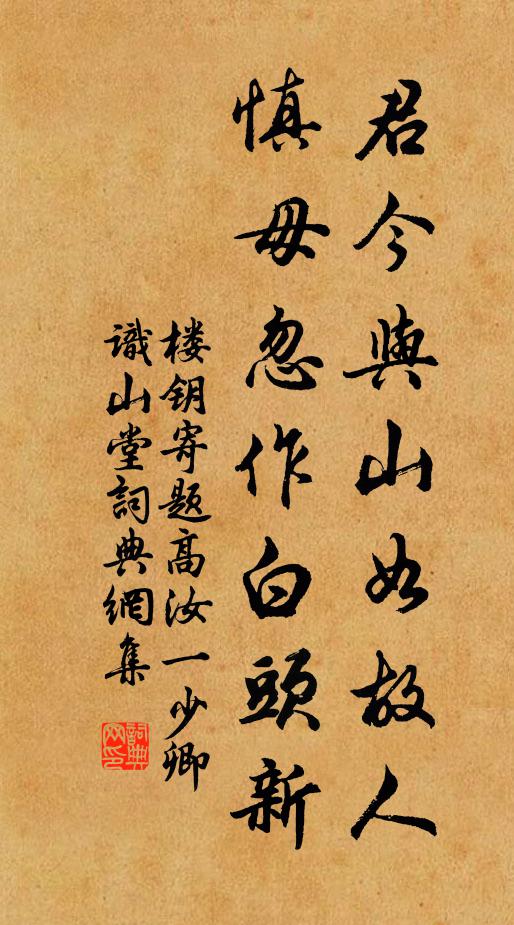 君今與山如故人
慎毋忽作白頭新
楼钥寄题高汝一少卿
識山堂詞典網集
詞典網印